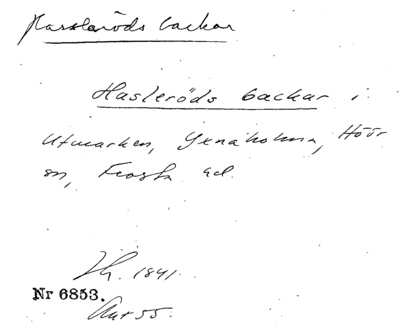 Hassleröds backar
Hasleröds backar i
Utmarken, Gunaholma, Höör
sn, Frosta hd.
Lh. 1841.
Nr 6853.
Akt 55.